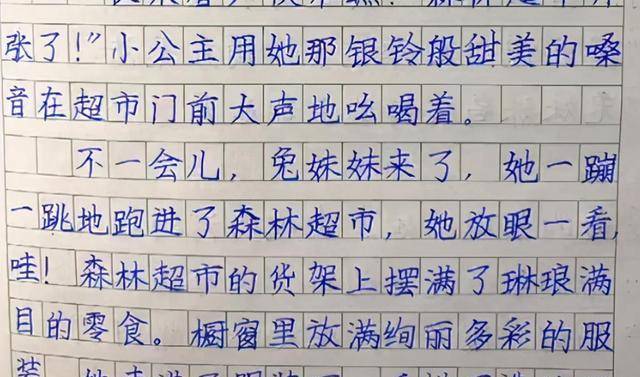 张了！”小公主用她那银铃般甜美的嗓
音在超市门前大声地吆喝着。
不一会儿，兔妹妹来了，她一蹦
一跳地跑进了森林超市，她放眼一看，
哇！森林超市的货架上摆满了琳琅满
目的零食。橱窗里放满绚丽多彩的服
装